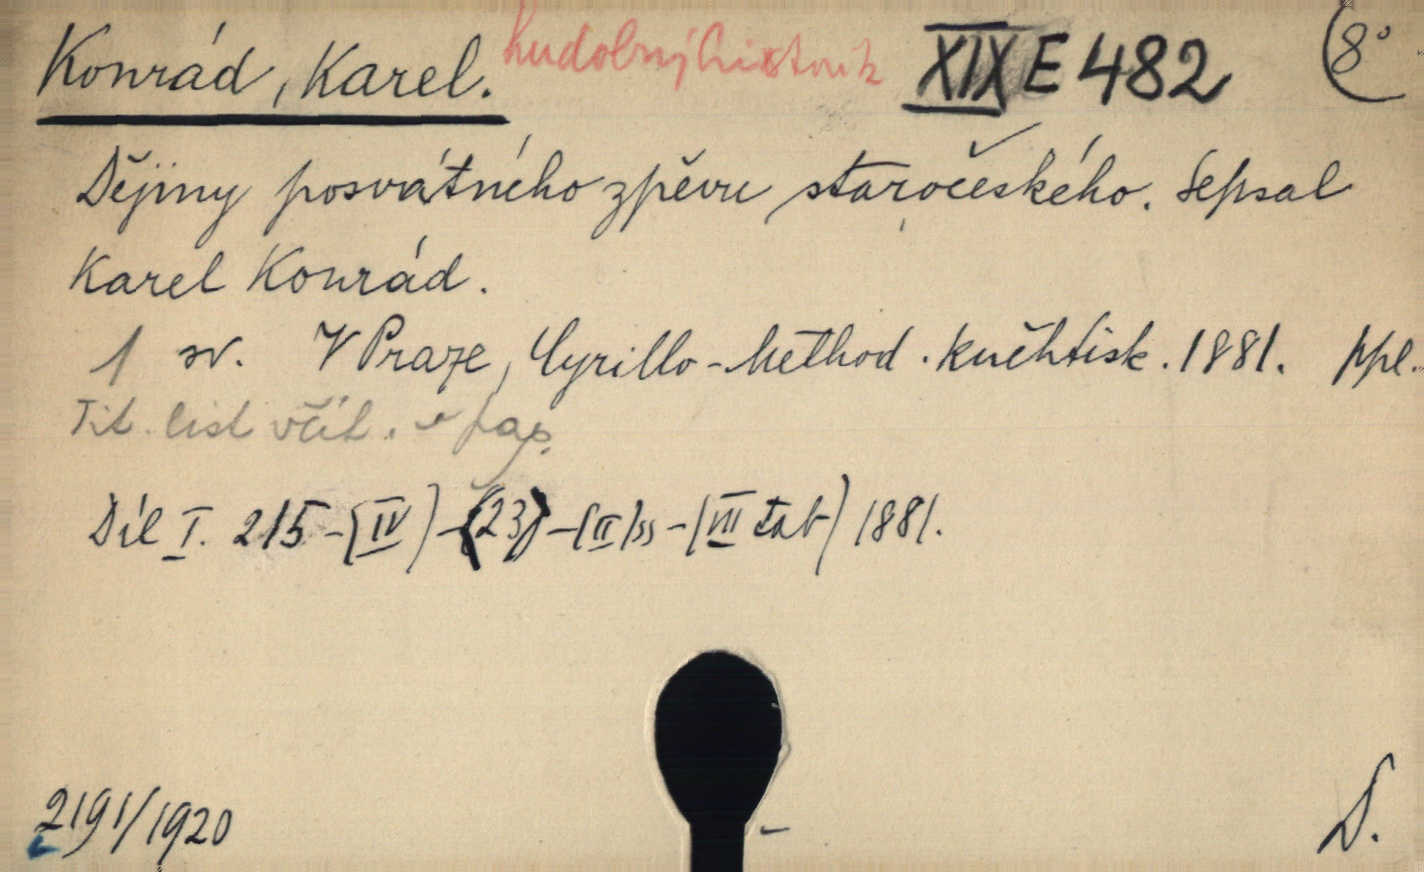 Konrád, Karel. hudobný historik XIX E 482 8°
Dějiny posvátného zpěvu staročeského. Sepsal
Karel Konrád.
1 sv. V Praze, Cyrillo-Method. kněhtisk. 1881. ppl.
Tit. list včít. v pag.
Díl I. 215-(IV)-(23)-(II)ss-(VII tab) 1881.
2191/1920
D.